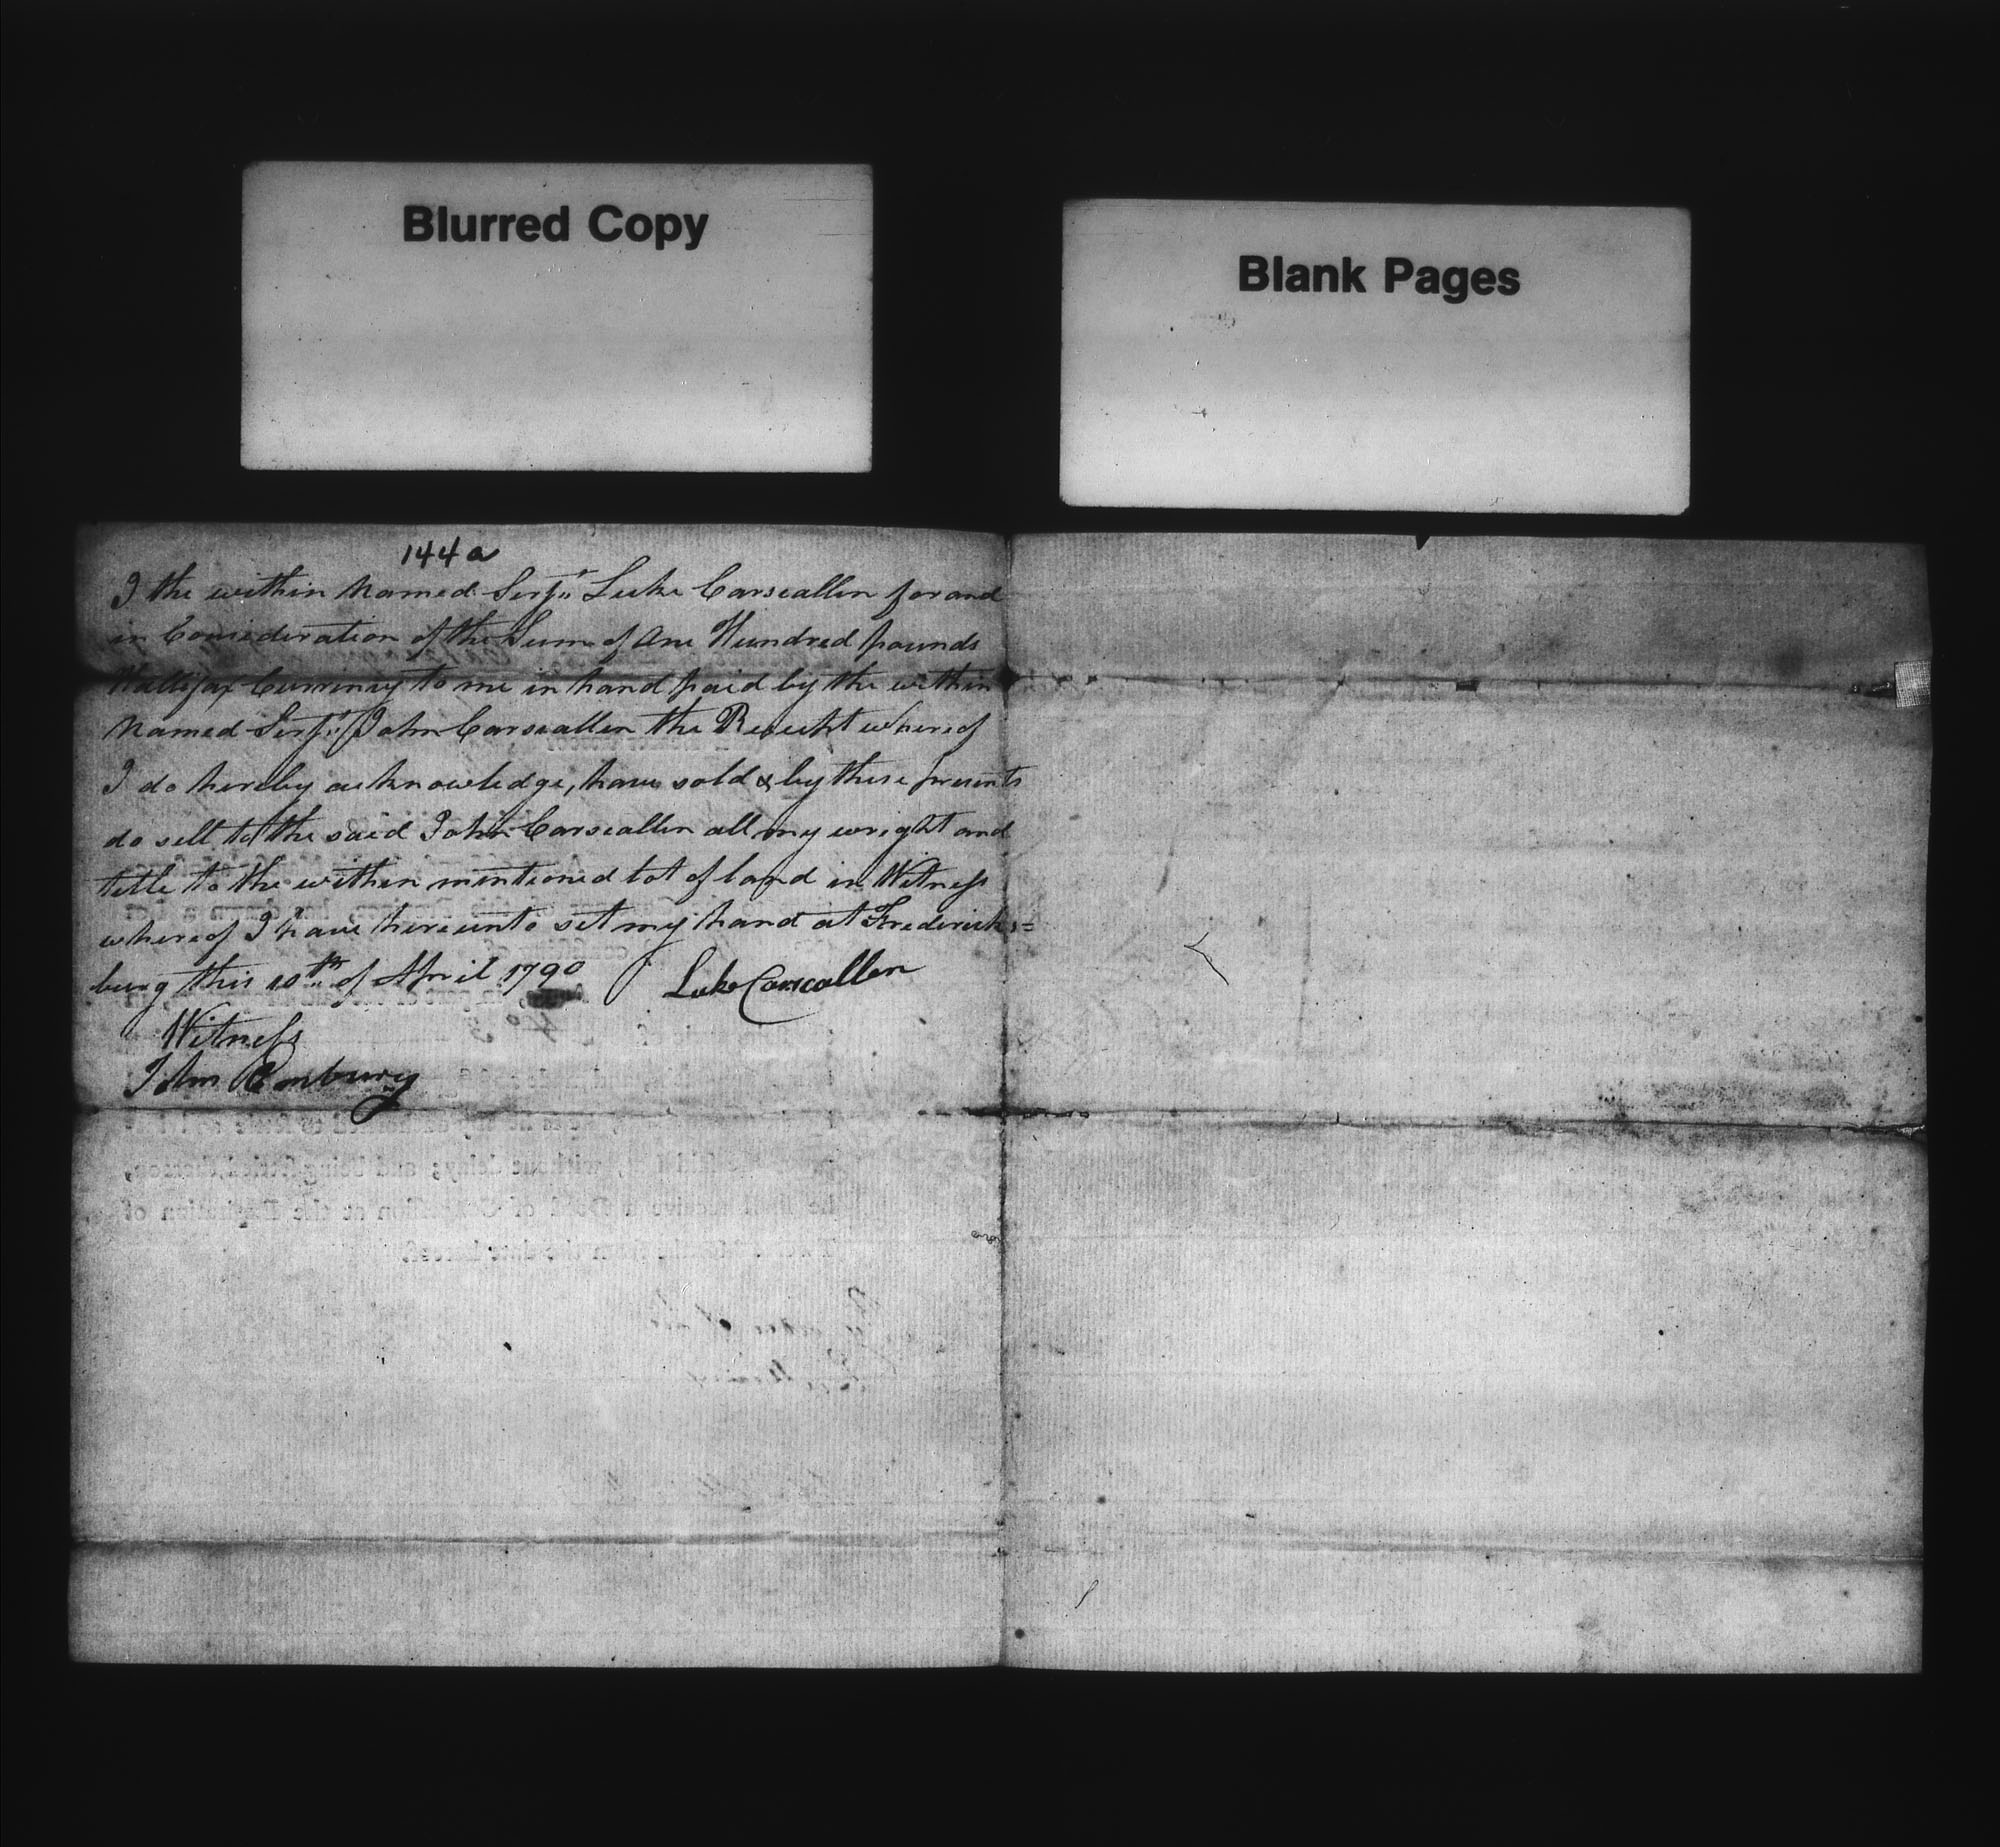 Blurred Copy
Blank Pages
144a
I the within Named Serjt Luke Carscallen for and
in Consideration of the Sum of One Hundred pounds
Hallifax Currency to me in hand paid by the within
Named Serjt John Carscallen the Receipt whereof
I do hereby acknowledge, have sold & by these presents
do sell to the said John Carscallen all my wright and
title to the within mentioned lot of land in Witness
whereof I have hereunto set my hand at Fredericks=
burg this 10th of April 1790 Luke Carscallen
Witness
John Embury